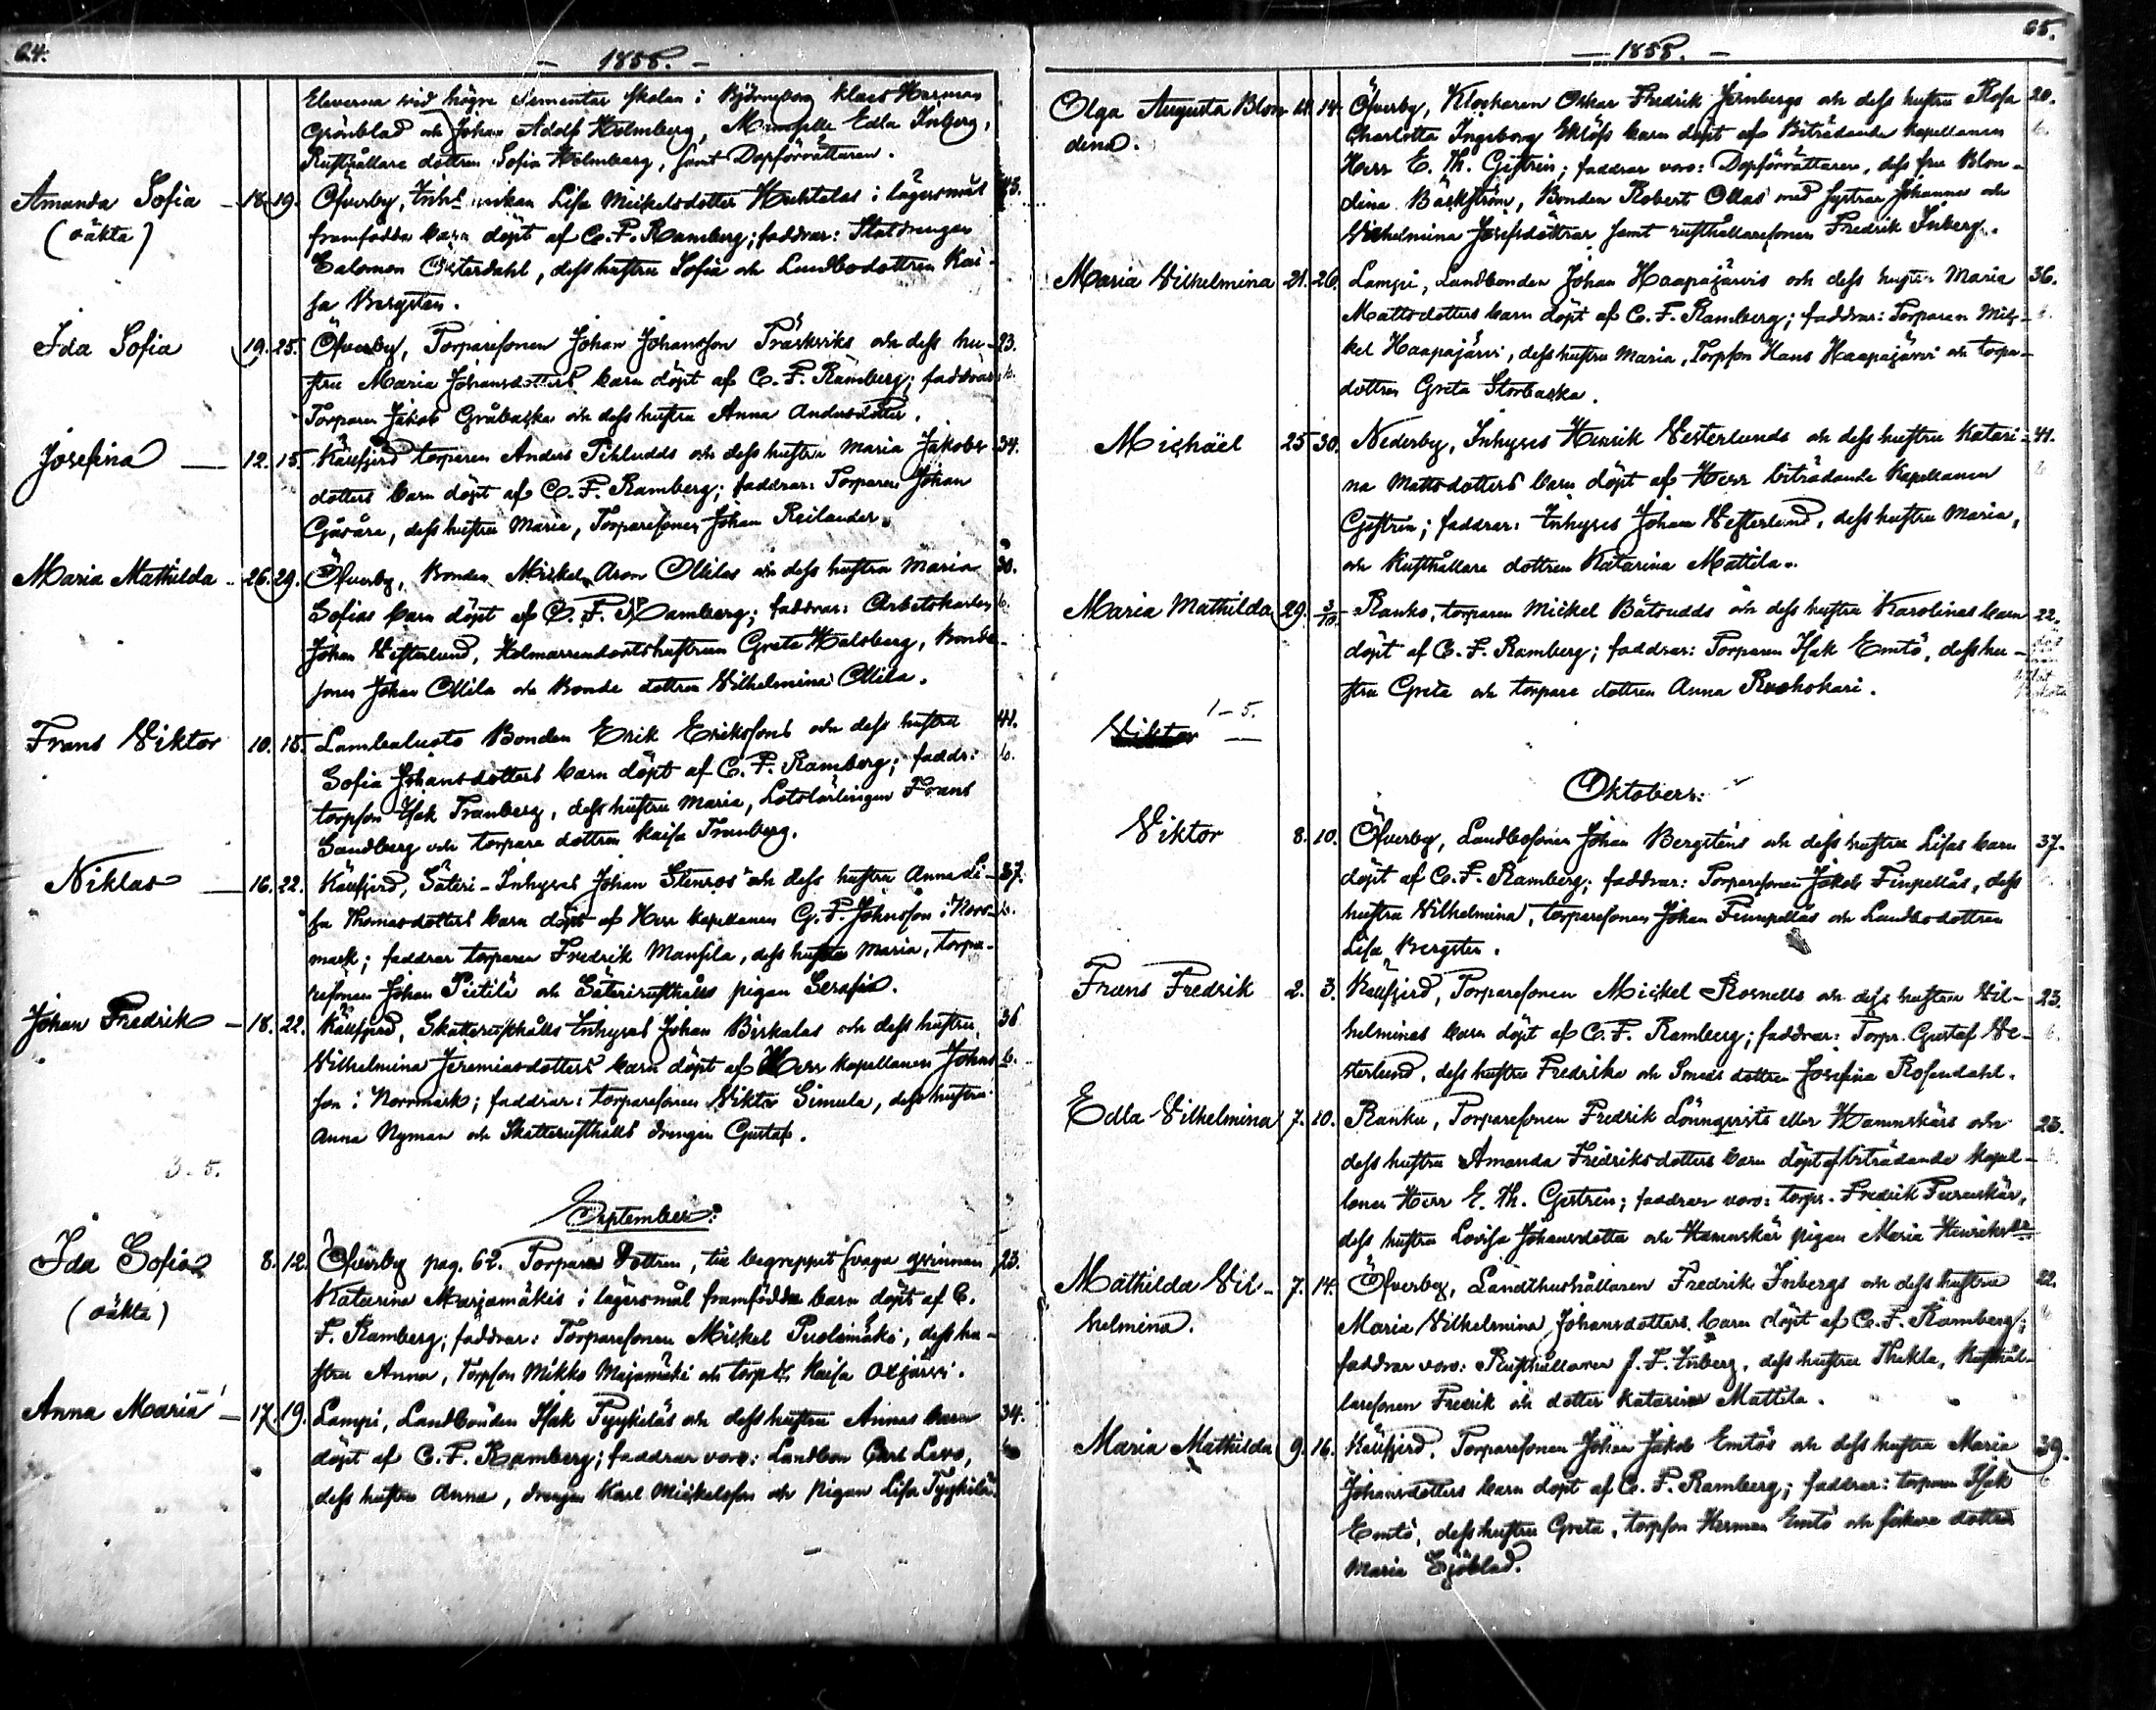 64.
— 1858. —
Eleverna wid högre Elementar Skolan i Björneborg Klaes Herman
Grönblad och Johan Adolf Holmberg, Mamselle Edla Inberg,
Rusthållare dottren Sofia Holmberg, samt Dopförrättaren.
Amanda Sofia — 18. 19. Öfverby, Lisa Mickelsdotter Huhtalas i lägersmål 43.
(oäkta) framfödda barn döpt af C. F. Ramberg; faddrar: Statdrengen
Salomon Österdahl, dess hustru Sofia och Landbodottren Kai-
sa Bergsten.
Ida Sofia 19. 25. Öfverby, Torparesonen Johan Johansson Träskviks och dess hu- 23.
stru Maria Johansdotters barn döpt af C. F. Ramberg; faddrar b.
Torparen Jakob Gråbacka och dess hustru Anna Andersdotter.
Josefina — 12. 15. Käufjerd torparen Anders Pihludds och dess hustru Maria Jakobs- 34.
dotters barn döpt af C. F. Ramberg; faddrar: Torparen Johan
Gåsåra, dess hustru Maria, Torparesonen Johan Reilander.
Maria Mathilda 26. 29. Öfverby, Bonden Mickel Aron Ollilas och dess hustru Maria 30.
Sofias barn döpt af C. F. Ramberg; faddrar: Arbetskarlen b.
Johan Vesterlund, hustrun Greta Halsberg, Bonde-
sonen Johan Ollila och Bonde dottren Vilhelmina Ollila.
Frans Viktor 10. 15. Lambaluoto Bonden Erik Erikssons och dess hustru 41.
Sofia Johansdotters barn döpt af C. F. Ramberg; faddr: b.
torpson Isak Tranberg, dess hustru Maria, Lotslärlingen Frans
Sandberg och torpare dottren Kaisa Tranberg.
Niklas — 16. 22. Käufjerd, Säteri-Inhyses Johan Stenros och dess hustru Anna Li- 37.
sa Thomasdotters barn döpt af Herr Kapellanen G. F. Johnsson i Norr- b.
mark; faddrar torparen Fredrik Mansila, dess hustru Maria, torpa-
resonen Johan Pietilä och Säterirusthålls pigan Serafia.
Johan Fredrik — 18. 22. Käufjerd, Skatterusthålls Inhyses Johan Birkalas och dess hustru 36
Vilhelmina Jeremiasdotters barn döpt af Herr Kapellanen Johns- b.
son i Norrmark; faddrar: torparesonen Viktor Simula, dess hustru
Anna Nyman och Skatterusthålls drengen Gustaf.
3-5.
September:
Ida Sofia 8. 12. Öfverby pag. 62. Torpare Dottren, till begreppet svaga qvinnan 23.
(oäkta) Katarina Marjamäkis i lägersmål framfödda barn döpt af C.
F. Ramberg; faddrar: Torparesonen Mickel Puolimäki, dess hu-
stru Anna, Torpson Mikko Majamäki och torp. d. Kaisa Oxjärvi.
Anna Maria — 17. 19. Lampi, Landbonden Isak Tyykiläs och dess hustru Annas barn 34.
döpt af C. F. Ramberg; faddrar voro: Landbon Carl Levo,
dess hustru Anna, drengen Karl Mickelsson och pigan Lisa Tyykilä.
65.
— 1858. —
Olga Augusta Blon- 12. 14. Öfverby, Klockaren Oskar Fredrik Jernbergs och dess hustru Rosa 20.
dina. Charlotta Ingeborg Eklöfs barn döpt af Biträdande Kapellanen b.
Herr E. Th. Gestrin; faddrar voro: Dopförrättaren, dess fru Blon-
dina Bäckström, Bonden Robert Ollas med systrar Johanna och
Vilhelmina Josefsdöttrar samt rusthållaresonen Fredrik Inberg.
Maria Vilhelmina 21. 26. Lampi, Landbonden Johan Haapajärvis och dess hustru Maria 36.
Mattsdotters barn döpt af C. F. Ramberg; faddrar: Torparen Mic- b.
kel Haapajärvi, dess hustru Maria, Torpson Hans Haapajärvi och torpa-
dottren Greta Storbacka.
Michäel 25 30. Nederby, Inhyses Henrik Vesterlunds och dess hustru Katari- 41.
na Mattsdotters barn döpt af Herr biträdande Kapellanen b
Gestrin; faddrar: Inhyses Johan Vesterlund, dess hustru Maria,
och Rusthållare dottren Katarina Mattila.
Maria Mathilda 29. 3/10. Ranko, torparen Mickel Båtsudds och dess hustru Karolinas barn 22.
döpt af C. F. Ramberg; faddrar: Torparen Isak Emtö, dess hu-
stru Greta och torpare dottren Anna Ruohokari.
1-5.
Viktor —
Oktober:
Viktor 8. 10. Öfverby, Landbosonen Johan Bergsténs och dess hustru Lisas barn 37.
döpt af C. F. Ramberg; faddrar: Torparesonen Jakob Finpellås, dess
hustru Vilhelmina, torparesonen Johan Finnpellås och Landbodottren
Lisa Bergsten.
Frans Fredrik 2. 3. Käufjerd, Torparesonen Mickel Rosnells och dess hustru Vil- 23.
helminas barn döpt af C. F. Ramberg; faddrar: Torpr. Gustaf Ve- b.
sterlund, dess hustru Fredrika och Smeds dottren Josefina Rosendahl.
Edla Vilhelmina 7. 10. Ranku, Torparesonen Fredrik Lönnqvists eller Hamnskärs och 23.
dess hustru Amanda Fredriksdotters barn döpt af biträdande Kapel- b.
lanen Herr E. Th. Gestrin; faddrar voro: torpr. Fredrik Furuskär,
dess hustru Lovisa Johansdotter och Hamnskär pigan Maria Henriksdr
Mathilda Vil- 7. 14. Öfverby, Landthushållaren Fredrik Inbergs och dess hustru 22.
helmina. Maria Vilhelmina Johansdotters barn döpt af C. F. Ramberg; b
faddrar voro: Rusthållaren J. F. Inberg, dess hustru Thekla, Rusthål-
laresonen Fredrik och dotter Katarina Mattila.
Maria Mathilda 9. 16. Käufjerd, Torparesonen Johan Jakob Emtös och dess hustru Maria 39.
Johansdotters barn döpt af C. F. Ramberg; faddrar: torparen Isak b
Emtö, dess hustru Greta, torpson Herman Emtö och fiskare dottren
Maria Sjöblad.